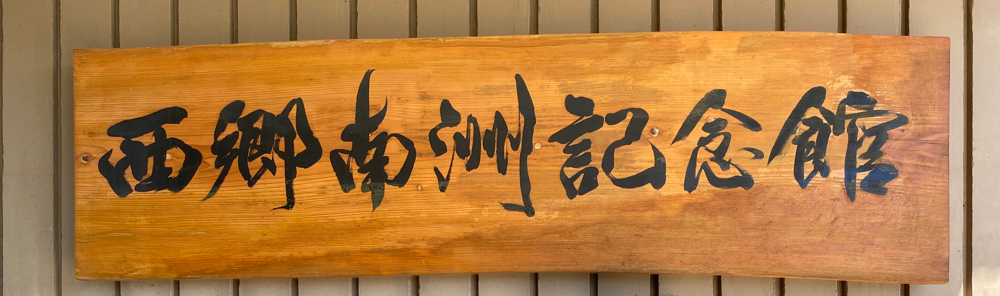 西郷南洲記念館